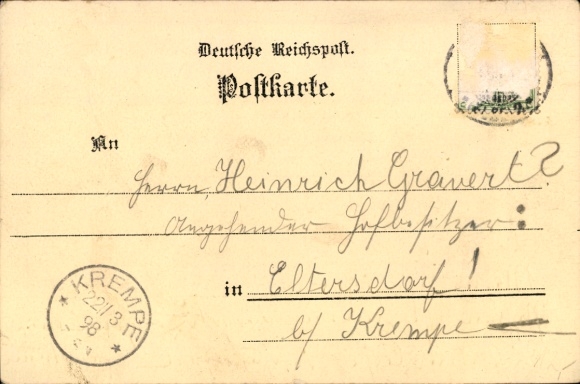 Deutsche Reichspost.
Postkarte.
An
Herrn Heinrich Gravert?
Angehender Hofbesitzer :
in Eltersdorf !
b/ Krempe
KREMPE
22/3
98